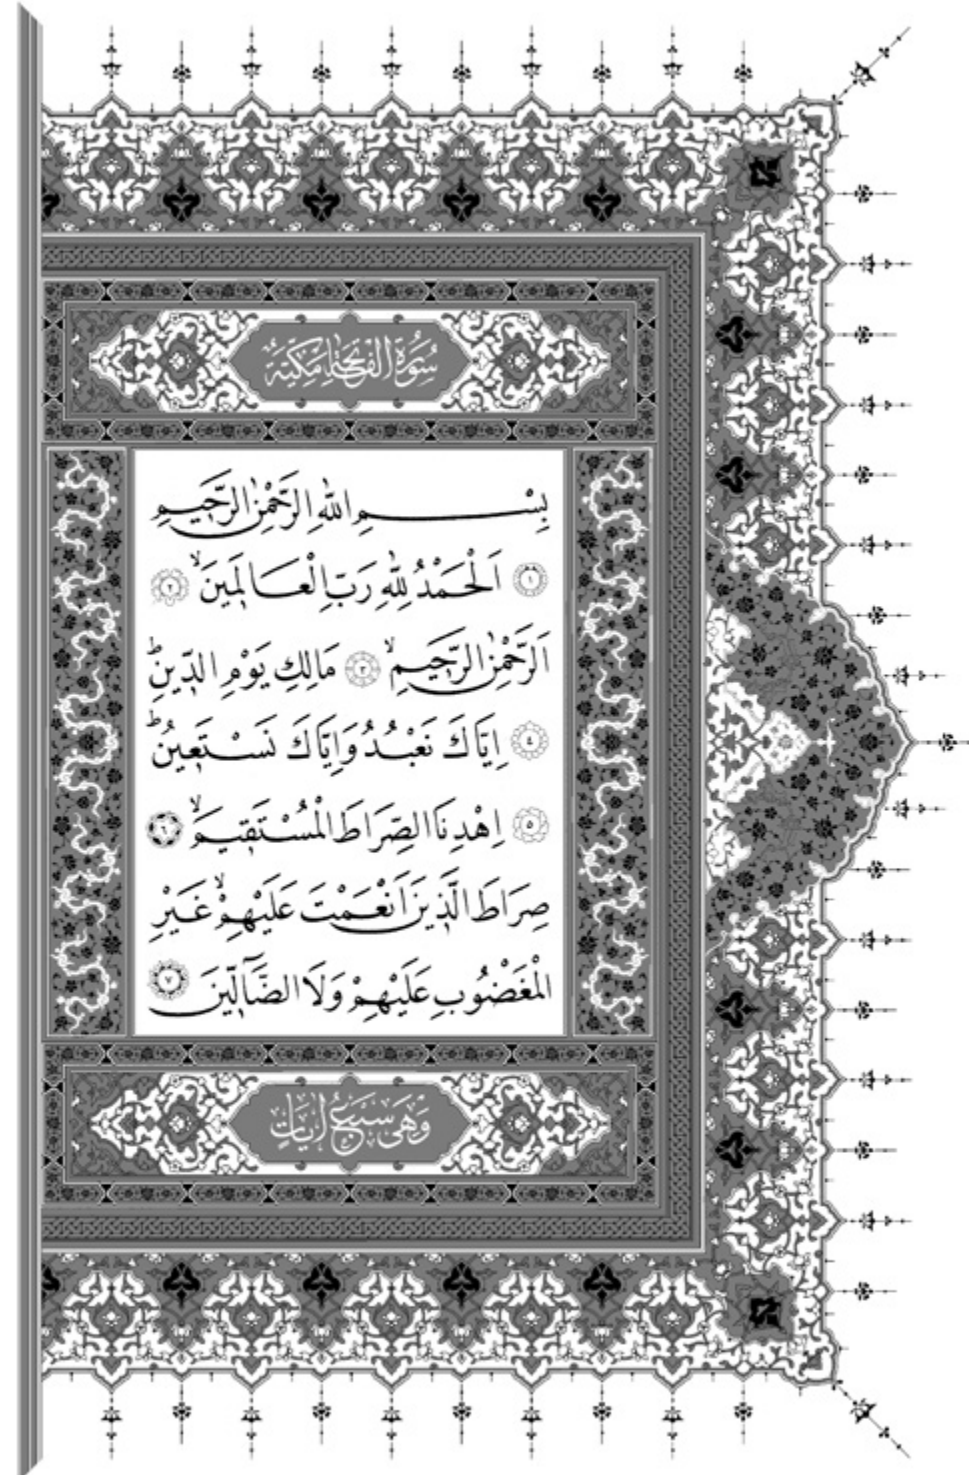 سُورَةُ الْفَاتِحَةِ مَكِّيَّةٌ
بِسْمِ اللّٰهِ الرَّحْمٰنِ الرَّحِيمِ
﴿١﴾ اَلْحَمْدُ لِلّٰهِ رَبِّ الْعَالَمِينَۙ ﴿٢﴾
اَلرَّحْمٰنِ الرَّحِيمِۙ ﴿٣﴾ مَالِكِ يَوْمِ الدِّينِۜ
﴿٤﴾ اِيَّاكَ نَعْبُدُ وَاِيَّاكَ نَسْتَعِينُۜ
﴿٥﴾ اِهْدِنَا الصِّرَاطَ الْمُسْتَقِيمَۙ ﴿٦﴾
صِرَاطَ الَّذِينَ اَنْعَمْتَ عَلَيْهِمْۙ غَيْرِ
الْمَغْضُوبِ عَلَيْهِمْ وَلَا الضَّٓالِّينَ ﴿٧﴾
وَهِيَ سَبْعُ اٰيَاتٍ